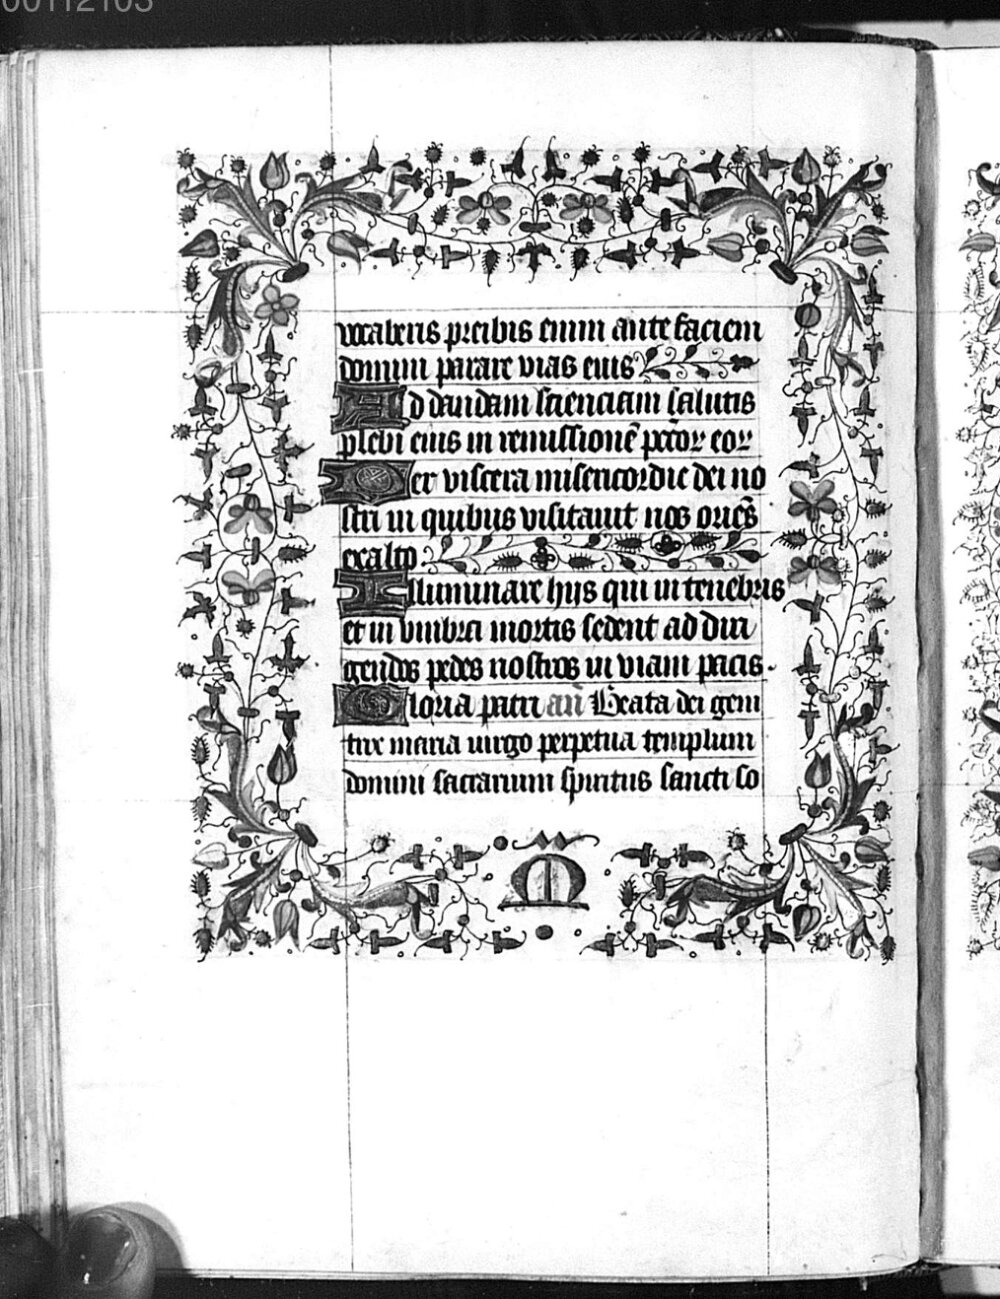 00112103
vocaberis preibis enim ante faciem
domini parare vias eius
Ad dandam scienciam salutis
plebi eius in remissionē pctōꝝ eoꝝ
Per viscera misericordie dei no
stri in quibus visitauit nos oriēs
ex alto
Illuminare hijs qui in tenebris
et in vmbra mortis sedent ad diri
gendos pedes nostros in viam pacis.
Gloria patri añ Beata dei geni
trix maria uirgo perpetua templum
domini sacrarium spiritus sancti so
M